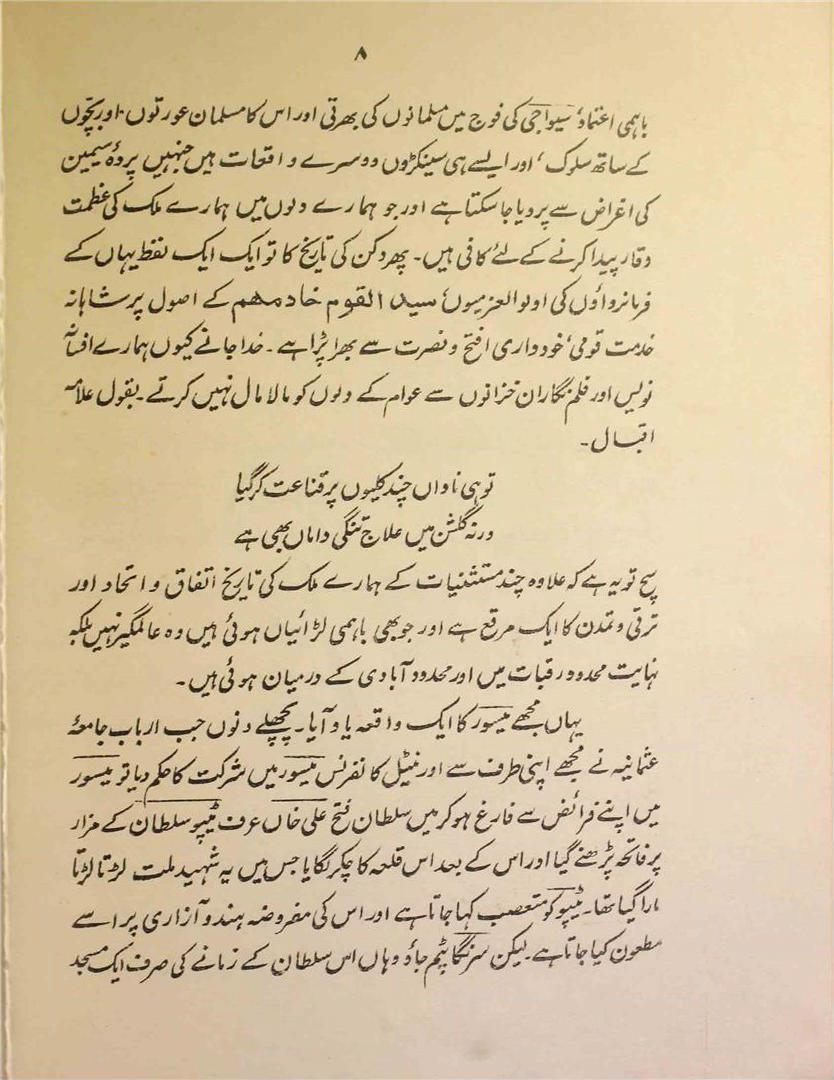 ۸
باہمی اعتماد، سیواجی کی فوج میں مسلمانوں کی بھرتی اور اس کا مسلمان عورتوں اور بچّوں
کے ساتھ سلوک، اور ایسے ہی سینکڑوں دوسرے واقعات ہیں جنہیں پردۂ سیمین
کی اغراض سے پرویا جا سکتا ہے اور جو ہمارے دلوں میں ہمارے ملک کی عظمت
وقار پیدا کرنے کے لئے کافی ہیں۔ پھر دکن کی تاریخ کا تو ایک ایک لفظ یہاں کے
فرمانرواؤں کی اولوالعزمیوں سید القوم خادمھم کے اصول پر شاہانہ
خدمت قومی، خودداری افتح و نصرت سے بھرا پڑا ہے۔ خدا جانے کیوں ہمارے افسانہ
نویس اور فلم نگار ان خزانوں سے عوام کے دلوں کو مالامال نہیں کرتے۔ بقول علامہ
اقبال۔
تو ہی ناداں چند کلیوں پر قناعت کر گیا
ورنہ گلشن میں علاج تنگی داماں بھی ہے
سچ تو یہ ہے کہ علاوہ چند مستثنیات کے ہمارے ملک کی تاریخ اتفاق و اتحاد اور
ترقی و تمدن کا ایک مرقع ہے اور جو بھی باہمی لڑائیاں ہوئی ہیں وہ عالمگیر نہیں بلکہ
نہایت محدود رقبات میں اور محدود آبادی کے درمیان ہوئی ہیں۔
یہاں مجھے میسور کا ایک واقعہ یاد آیا۔ پچھلے دنوں جب ارباب جامعۂ
عثمانیہ نے مجھے اپنی طرف سے اورنیٹل کانفرنس میسور میں شرکت کا حکم دیا تو میسور
میں اپنے فرائض سے فارغ ہو کر میں سلطان فتح علی خاں عرف ٹیپو سلطان کے مزار
پر فاتحہ پڑھنے گیا اور اس کے بعد اس قلعہ کا چکر لگایا جس میں یہ شہید ملت لڑتا لڑتا
مارا گیا تھا۔ ٹیپو کو متعصب کہا جاتا ہے اور اس کی مفروضہ ہندو آزاری پر اسے
مطعون کیا جاتا ہے۔ لیکن سرنگاپٹم جاؤ وہاں اس سلطان کے زمانے کی صرف ایک مسجد